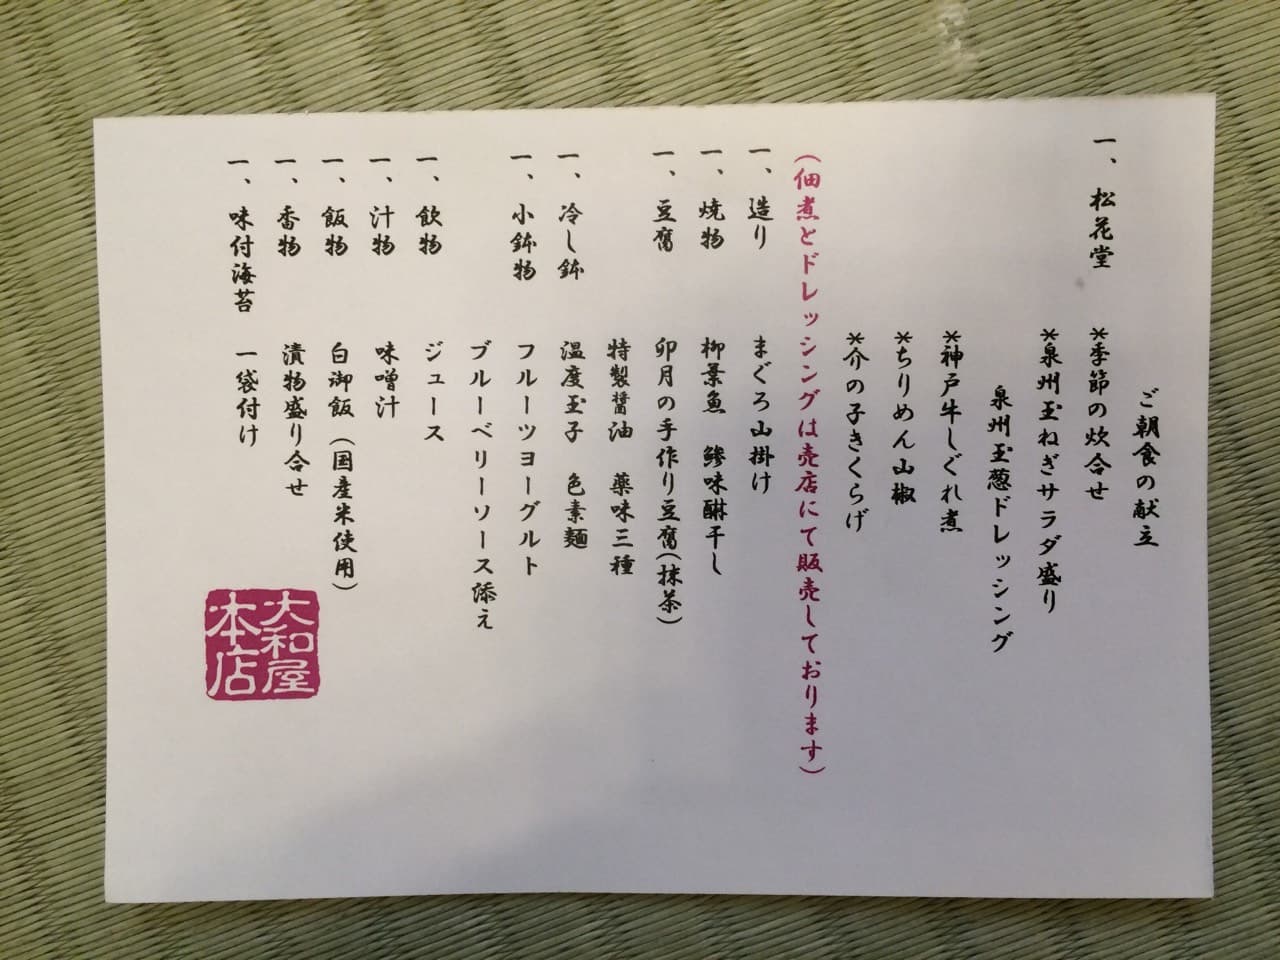 ご朝食の献立
一、松花堂　＊季節の炊合せ
＊泉州玉ねぎサラダ盛り
泉州玉葱ドレッシング
＊神戸牛しぐれ煮
＊ちりめん山椒
＊介の子きくらげ
（佃煮とドレッシングは売店にて販売しております）
一、造り　まぐろ山掛け
一、焼物　柳葉魚　鯵味醂干し
一、豆腐　卯月の手作り豆腐（抹茶）
特製醤油　薬味三種
一、冷し鉢　温度玉子　色素麺
一、小鉢物　フルーツヨーグルト
ブルーベリーソース添え
一、飲物　ジュース
一、汁物　味噌汁
一、飯物　白御飯（国産米使用）
一、香物　漬物盛り合せ
一、味付海苔　一袋付け
大和屋
本店